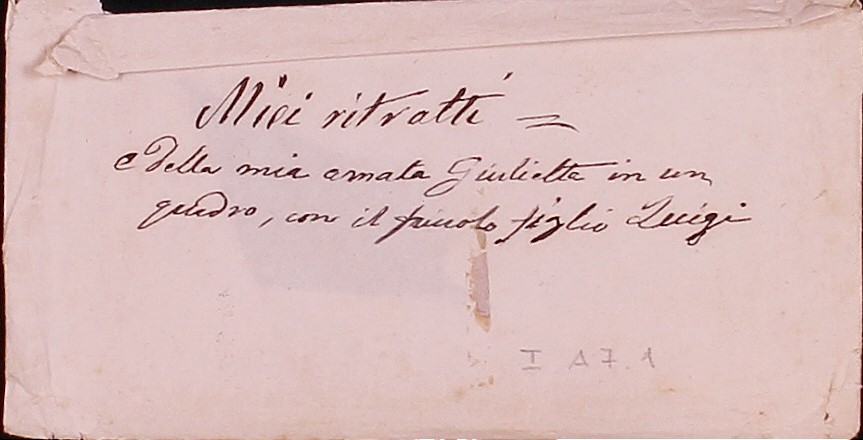 Miei ritratti =
e Della mia amata Giulietta in un
quadro, con il piccolo figlio Luigi
I A 7.1